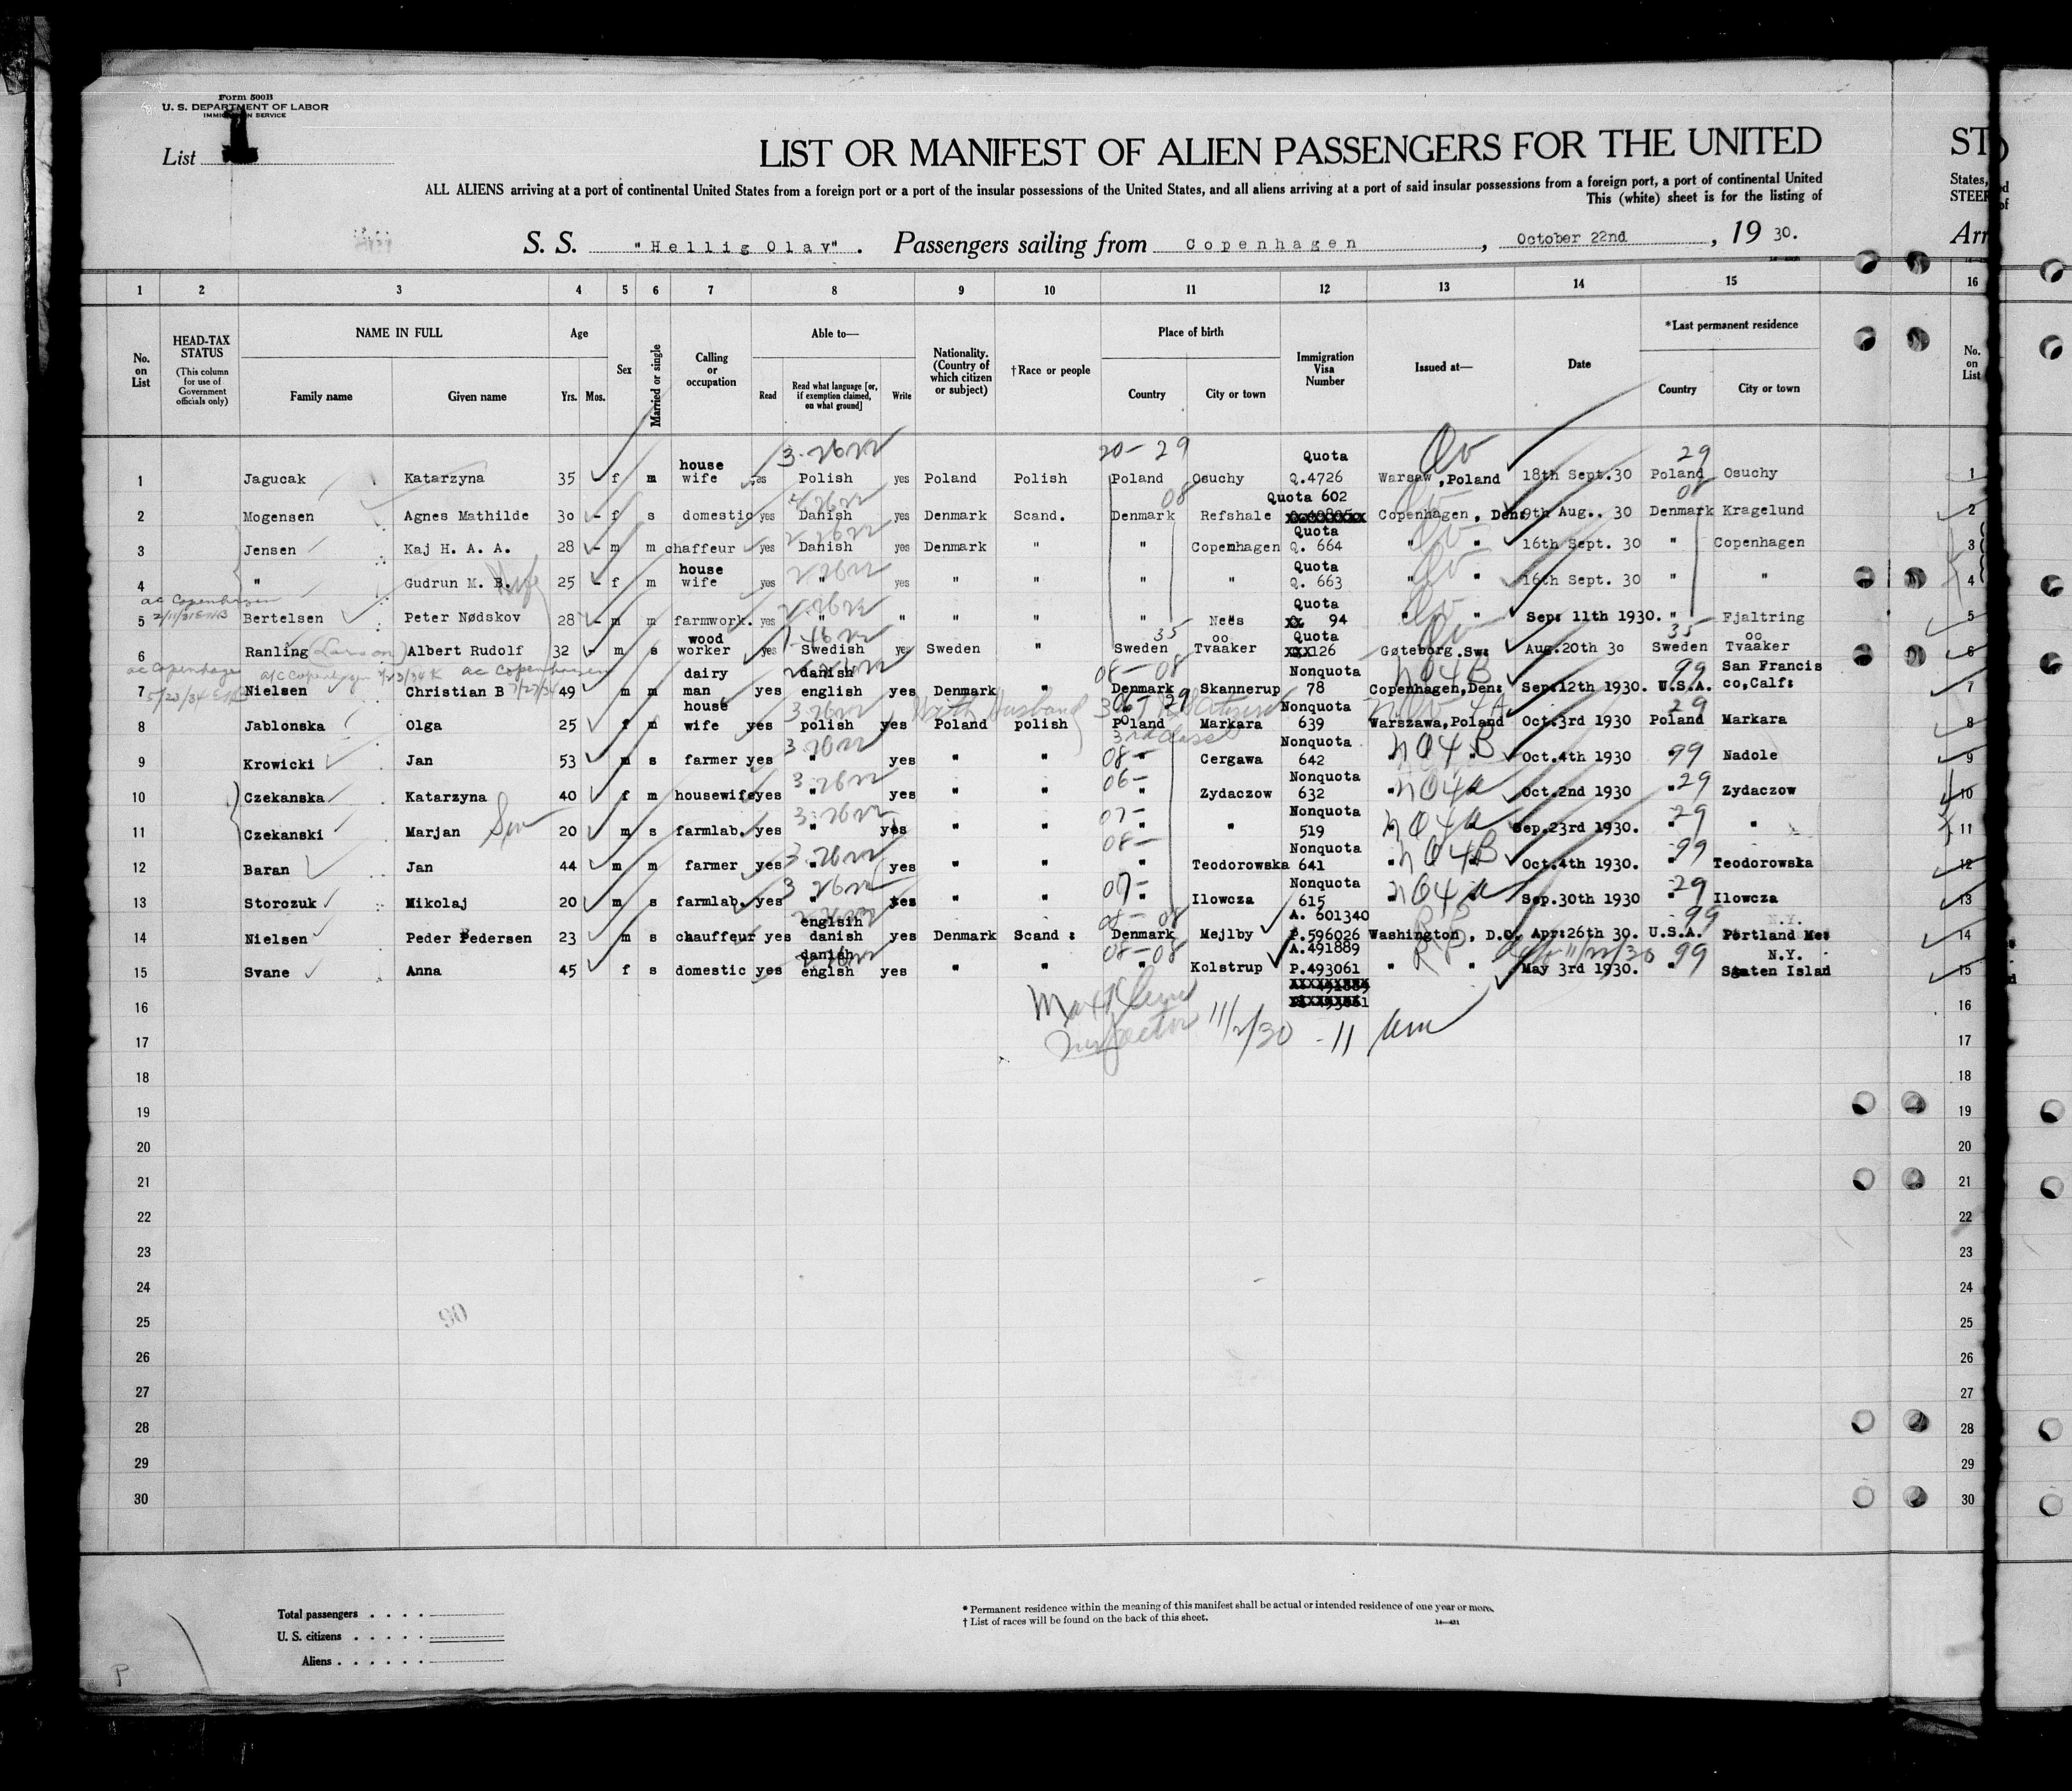 Form 500B
U. S. DEPARTMENT OF LABOR
IMMIGRATION SERVICE
List 1
LIST OR MANIFEST OF ALIEN PASSENGERS FOR THE UNITED
ALL ALIENS arriving at a port of continental United States from a foreign port or a port of the insular possessions of the United States, and all aliens arriving at a port of said insular possessions from a foreign port, a port of continental United
This (white) sheet is for the listing of
S. S. "Hellig Olav". Passengers sailing from Copenhagen, October 22nd, 19 30.
ST
States,
STEER
Arr
1 2 3 4 5 6 7 8 9 10 11 12 13 14 15 16
No. on List
HEAD-TAX STATUS
(This column for use of Government officials only)
NAME IN FULL
Family name Given name
Age
Yrs. Mos.
Sex
Married or single
Calling or occupation
Able to—
Read
Read what language [or, if exemption claimed, on what ground]
Write
Nationality. (Country of which citizen or subject)
†Race or people
Place of birth
Country City or town
Immigration Visa Number
Issued at—
Date
*Last permanent residence
Country City or town
No. on List
3-2622 20-29 Qv 29
1 Jagucak Katarzyna 35 f m house wife yes Polish yes Poland Polish Poland Osuchy Quota Q.4726 Warsaw, Poland 18th Sept.30 Poland Osuchy 1
08 08
2 Mogensen Agnes Mathilde 30 - f s domestic yes Danish yes Denmark Scand. Denmark Refshale Quota 602 Copenhagen, Den: 9th Aug.. 30 Denmark Kragelund 2
3 Jensen Kaj H. A. A. 28 - m m chaffeur yes Danish yes Denmark " " Copenhagen Quota Q. 664 " " 16th Sept. 30 " Copenhagen 3
4 " Gudrun M. B. Wife 25 - f m house wife yes " yes " " " " Quota Q. 663 " " 16th Sept. 30 " " 4
ac Copenhagen
5 Bertelsen Peter Nødskov 28 - m m farmwork. yes " " " " " Nees Quota 94 " " Sep: 11th 1930. " Fjaltring 5
35 Qv 35
6 Ranling (Larson) Albert Rudolf 32 - m s wood worker yes Swedish yes Sweden " Sweden Tvaaker Quota 126 Gøteborg.Sw: Aug.20th 30 Sweden Tvaaker 6
ac Copenhagen a/c Copenhagen ac Copenhagen
5/23/34
08-08 no4B 99
7 Nielsen Christian B 49 m m dairy man yes danish english yes Denmark " Denmark Skannerup Nonquota 78 Copenhagen,Den: Sep:12th 1930. U.S.A. San Francis co,Calf: 7
With Husband 29
3rd class
8 Jablonska Olga 25 f m house wife yes polish yes Poland polish Poland Markara Nonquota 639 Warszawa,Poland Oct.3rd 1930 Poland Markara 8
3-2622 08- no4B 99
9 Krowicki Jan 53 m s farmer yes " yes " " " Cergawa Nonquota 642 " Oct.4th 1930 " Nadole 9
3-2622 06- no4a 29
10 Czekanska Katarzyna 40 f m housewife yes " yes " " " Zydaczow Nonquota 632 " Oct.2nd 1930 " Zydaczow 10
3-2622 07- no4a 29
11 Czekanski Marjan Son 20 m s farmlab. yes " yes " " " " Nonquota 519 " Sep.23rd 1930. " " 11
3-2622 08- no4B 99
12 Baran Jan 44 m m farmer yes " yes " " " Teodorowska Nonquota 641 " Oct.4th 1930. " Teodorowska 12
3 2622 07- no4a 29
13 Storczuk Mikolaj 20 m s farmlab. yes " yes " " " Ilowcza Nonquota 615 " Sep.30th 1930 " Ilowcza 13
08-08 99
14 Nielsen Peder Pedersen 23 m s chauffeur yes englsih danish yes Denmark Scand: Denmark Mejlby A. 601340 P.596026 Washington, D.C. Apr:26th 30. U.S.A. N.Y. Portland Me: 14
08-08 11/22/30 99
15 Svane Anna 45 f s domestic yes danish englsh yes " " " Kolstrup A.491889 P.493061 " " May 3rd 1930. " N.Y. Staten Islad 15
16 16
Inspector 11/2/30 - 11 am
17 17
18 18
19 19
20 20
21 21
22 22
23 23
24 24
25 25
26 26
27 27
28 28
29 29
30 30
Total passengers . . . .
U. S. citizens . . . . .
Aliens . . . . . .
* Permanent residence within the meaning of this manifest shall be actual or intended residence of one year or more.
† List of races will be found on the back of this sheet.
P